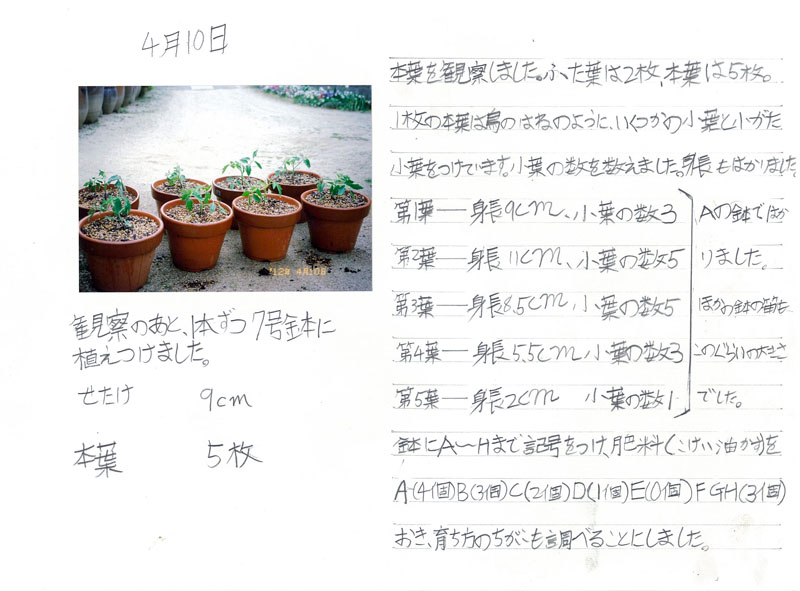 4月10日
'12 4月10日
観察のあと、1本ずつ7号鉢に
植えつけました。
せたけ 9cm
本葉 5枚
本葉を観察しました。ふた葉は2枚、本葉は5枚。
1枚の本葉は鳥のはねのように、いくつかの小葉と小がた
小葉をつけています。小葉の数を数えました。身長もはかりました。
第1葉──身長9cm、小葉の数3
第2葉──身長11cm、小葉の数5
第3葉──身長8.5cm 小葉の数5
第4葉──身長5.5cm 小葉の数3
第5葉──身長2cm 小葉の数1
Aの鉢ではか
りました。
ほかの鉢の苗も、
このぐらいの大きさ
でした。
鉢にA〜Hまで記号をつけ、肥料(こけい油かす)を
A(4個)B(3個)C(2個)D(1個)E(0個)FGH(3個)
おき、育ち方のちがいも調べることにしました。